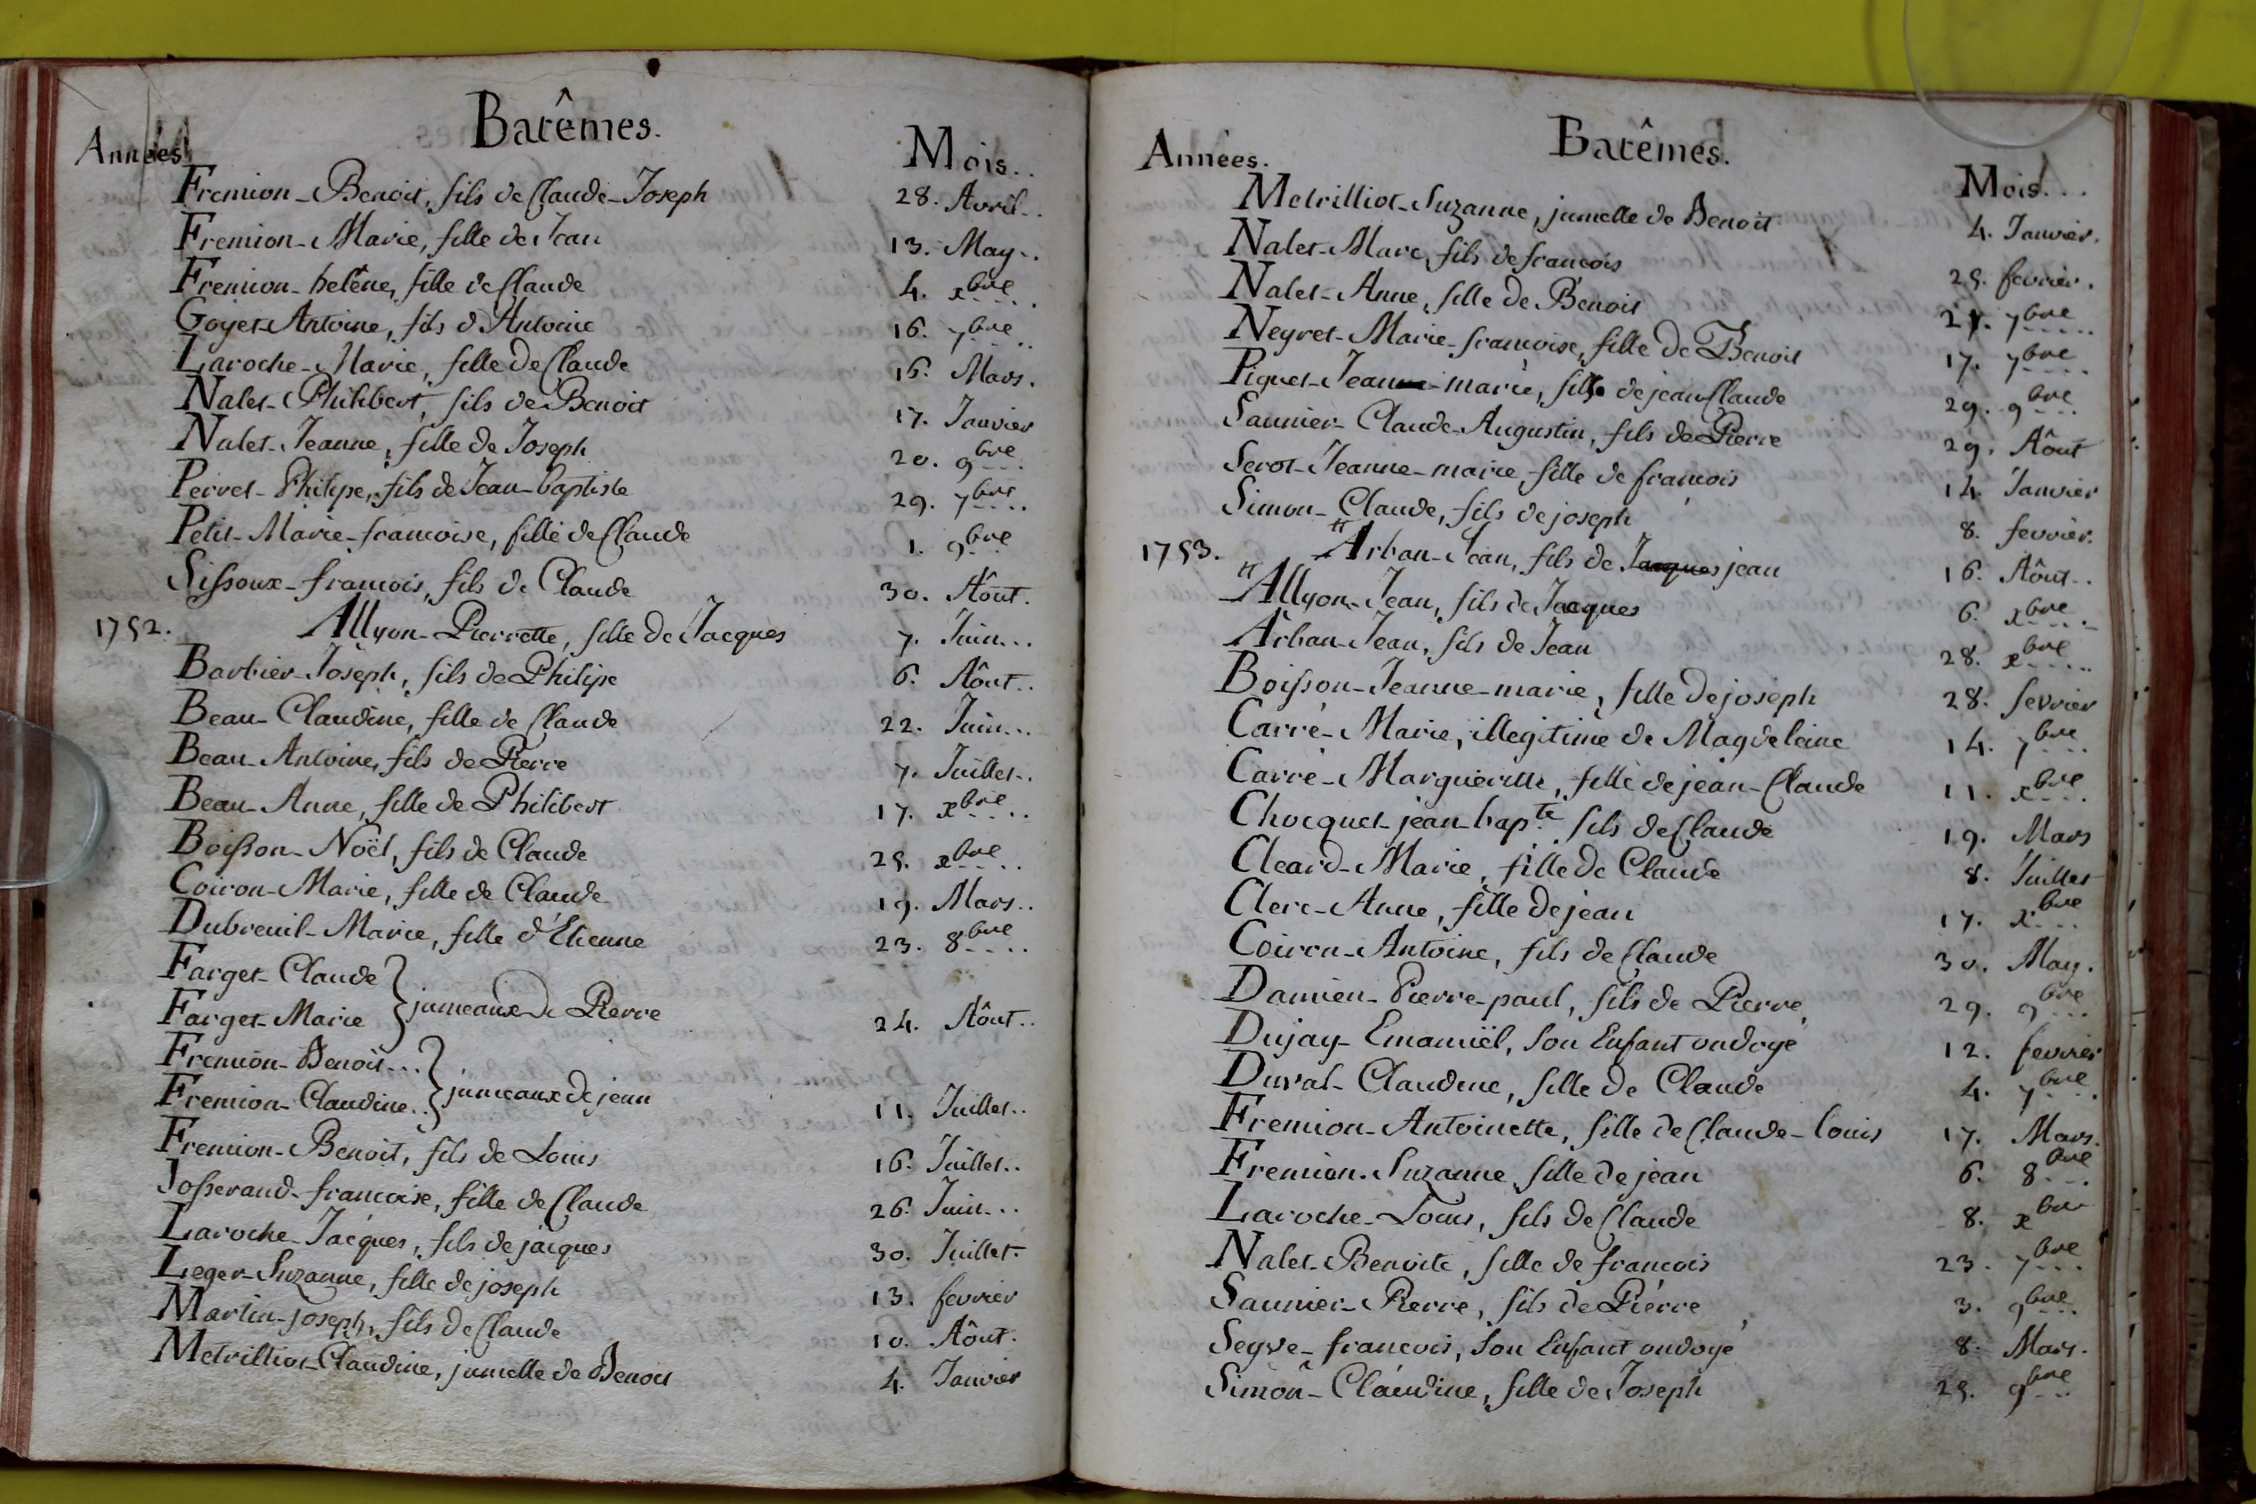 Batêmes.
Années Mois..
Fremion-Benoit, fils de Claude-Joseph 28. Avril..
Fremion-Marie, fille de Jean 13. May..
Fremion-heléne, fille de Claude 4. xbre
Goyet-Antoine, fils d'Antoine 16. 7bre
Laroche-Marie, fille de Claude 16. Mars.
Nalet-Philibert, fils de Benoit 17. Janvier
Nalet-Jeanne, fille de Joseph 20. 9bre
Perret-Philipe, fils de Jean-baptiste 29. 7bre
Petit-Marie-francoise, fille de Claude 1. 9bre
Sissoux-francois, fils de Claude 30. Aôut.
1752. Allyon-Pierrette, fille de Jacques 7. Juin...
Barbier-Joseph, fils de Philipe 6. Aôut..
Beau-Claudine, fille de Claude 22. Juin...
Beau-Antoine, fils de Pierre 7. Juillet..
Beau-Anne, fille de Philibert 17. xbre
Boisson-Noël, fils de Claude 25. xbre
Coiron-Marie, fille de Claude 19. Mars..
Dubreuil-Marie, fille d'Etienne 23. 8bre
Farget-Claude
Farget-Marie } jumeaux de Pierre 24. Aôut..
Fremion-Benoit...
Fremion-Claudine.. } jumeaux de jean 11. Juillet..
Fremion-Benoit, fils de Louis 16. Juillet..
Josserand-francoise, fille de Claude 26. Juin...
Laroche-Jacques, fils de jacques 30. Juillet.
Leger-Suzanne, fille de joseph 13. fevrier
Martin-joseph, fils de Claude 10. Aôut.
Metrilliot-Claudine, jumelle de Benoit 4. Janvier
Batêmes.
Années. Mois...
Metrilliot-Suzanne, jumelle de Benoit 4. Janvier.
Nalet-Marc, fils de francois 25. fevrier.
Nalet-Anne, fille de Benoit 7bre
Neyret-Marie-francoise, fille de Benoit 17. 7bre
Piquet-Jean-marie, fils de jean Claude 29. 9bre
Saunier-Claude-Augustin, fils de Pierre 29. Aôut
Serot-Jeanne-marie, fille de francois 14. Janvier
Simon-Claude, fils de joseph 8. fevrier.
1753. Arban-Jean, fils de Jacques jean 16. Aôut..
Allyon-Jean, fils de Jacques 6. xbre
Arban-Jean, fils de Jean 28. xbre
Boisson-Jeanne-marie, fille de joseph 28. fevrier
Carré-Marie, illegitime de Magdeleine 14. 7bre
Carré-Margueritte, fille de jean-Claude 11. xbre
Chocquet-jean-bapte. fils de Claude 19. Mars
Cleard-Marie, fille de Claude 8. Juillet
Clerc-Anne, fille de jean 17. xbre
Coiron-Antoine, fils de Claude 30. May.
Damien-Pierre-paul, fils de Pierre 29. 9bre
Dujay-Emanuël, son Enfant ondoyé 12. fevrier
Duval-Claudine, fille de Claude 4. 7bre
Fremion-Antoinette, fille de Claude-Louis 17. Mars.
Fremion-Suzanne, fille de jean 6. 8bre
Laroche-Louis, fils de Claude 8. xbre
Nalet-Benoite, fille de francois 23. 7bre
Saunier-Pierre, fils de Pierre 3. 9bre
Seyve-francois, son Enfant ondoyé 8. Mars.
Simon-Claudine, fille de Joseph 25. 9bre